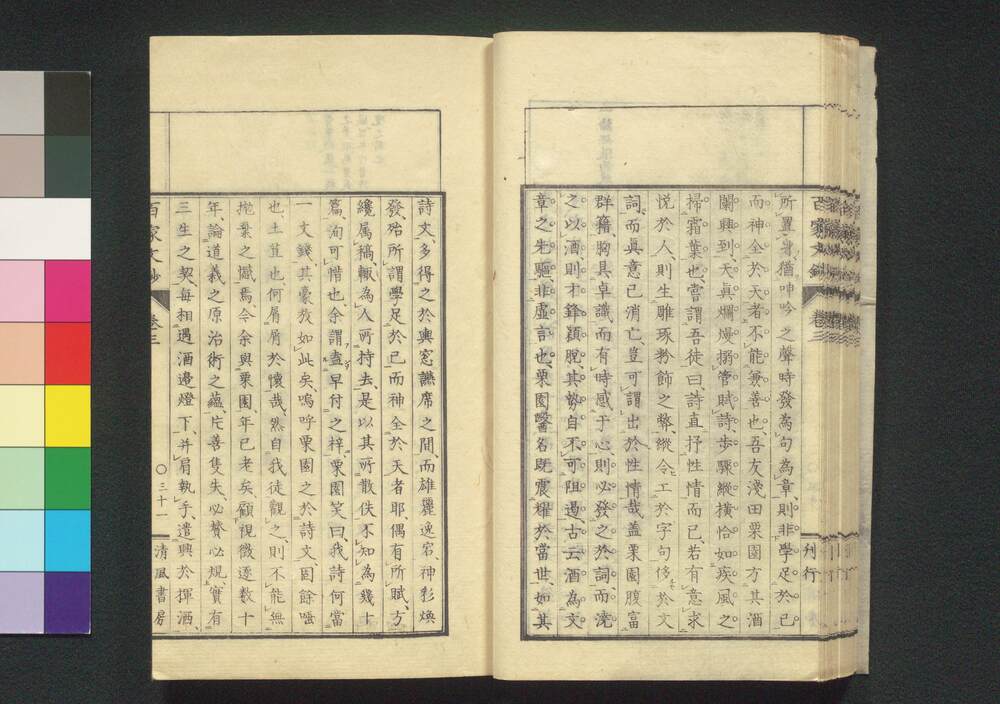 所置身、猶呻吟之聲時發為句為章、則非學足於己
而神全於天者不能兼善也、吾友淺田栗園方其酒
闌興到、天眞爛熳搦管賦詩、步驟縱橫恰如疾風之
掃霜葉也、嘗謂吾徒曰、詩直抒性情而已、若有意求
悅於人、則生雕琢粉飾之弊、縱令工於字句侈於文
詞、而眞意已消亡、豈可謂出於性情哉盖栗園腹富
群籍、胸具卓識、而有時感于心、則必發之於詞、而澆
之以酒、則才鋒穎脫、其勢自不可阻遏、古云酒為文
章之先驅、非虛言也、栗園醫名既震耀於當世、如其
百家文鈔
卷三
刊行
詩文、多得之於輿窓讌席之間、而雄麗逸宕、神彩煥
發、殆所謂學足於已而神全於天者耶、偶有所賦、方
纔属稿、輙為人所持去、是以其所散佚不知為幾十
篇、洵可惜也、余謂盍早付之梓、栗園笑曰、我詩何當
一文錢、其豪放如此矣、嗚呼栗園之於詩文、固餘唾
也、土苴也、何屑屑於懷哉、然自我徒觀之、則不能無
抛棄之憾焉、今余與栗園、年已老矣、顧視徵逐數十
年、論道義之原治術之蘊、片善隻失、必贊必規、實有
三生之契、每相遇酒邊燈下、并肩執手、遣興於揮洒、
百家文鈔
卷三
〇三十一
清風書房